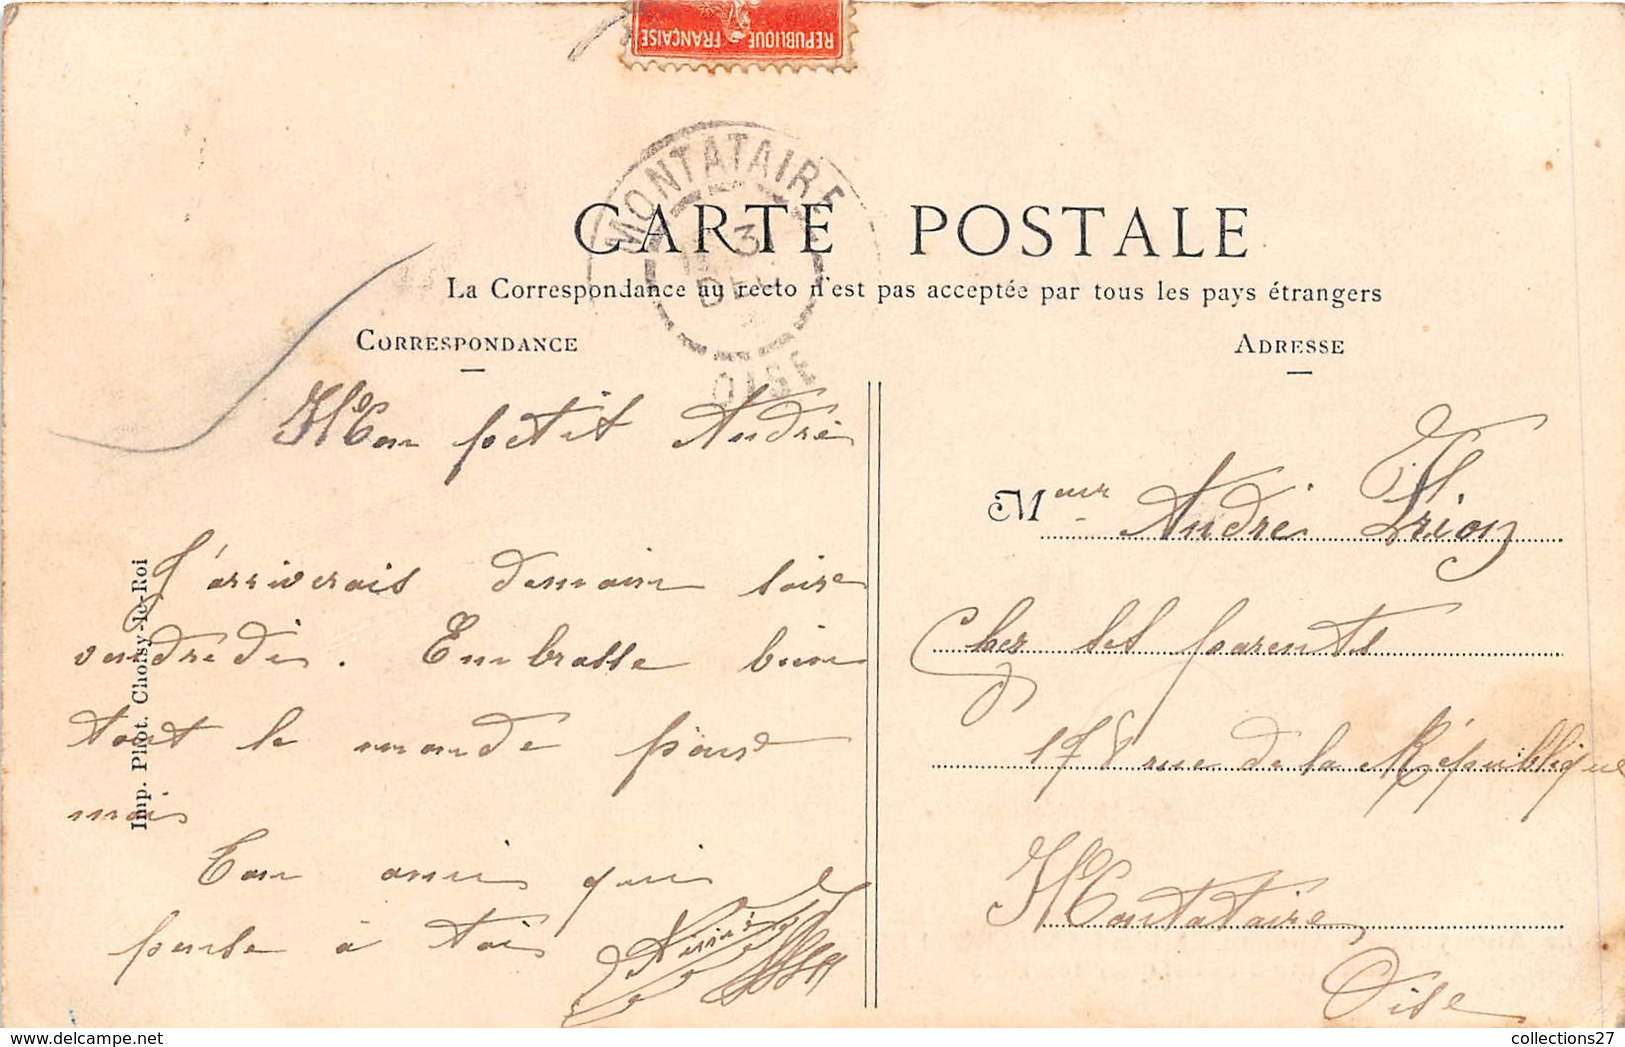 REPUBLIQUE FRANÇAISE
MONTATAIRE
3
DEC
OISE
CARTE POSTALE
La Correspondance au recto n'est pas acceptée par tous les pays étrangers
CORRESPONDANCE
ADRESSE
Mon petit André
J'arriverais demain soire
vendredi. Embrasse bien
tout le monde pour
moi
Ton ami qui
pense à toi
Meur André
Chez ses parents
178 rue de la République
Montataire
Oise
Imp. Phot. Choisy-le-Roi
collections27